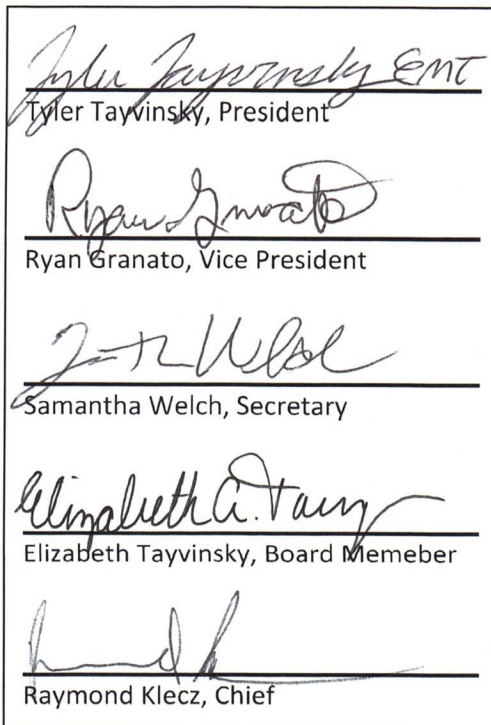 Tyler Tayvinsky EMT
Tyler Tayvinsky, President
Ryan Granato
Ryan Granato, Vice President
Welch
Samantha Welch, Secretary
Elizabeth A. Tayv
Elizabeth Tayvinsky, Board Memeber
Raymond Klecz, Chief